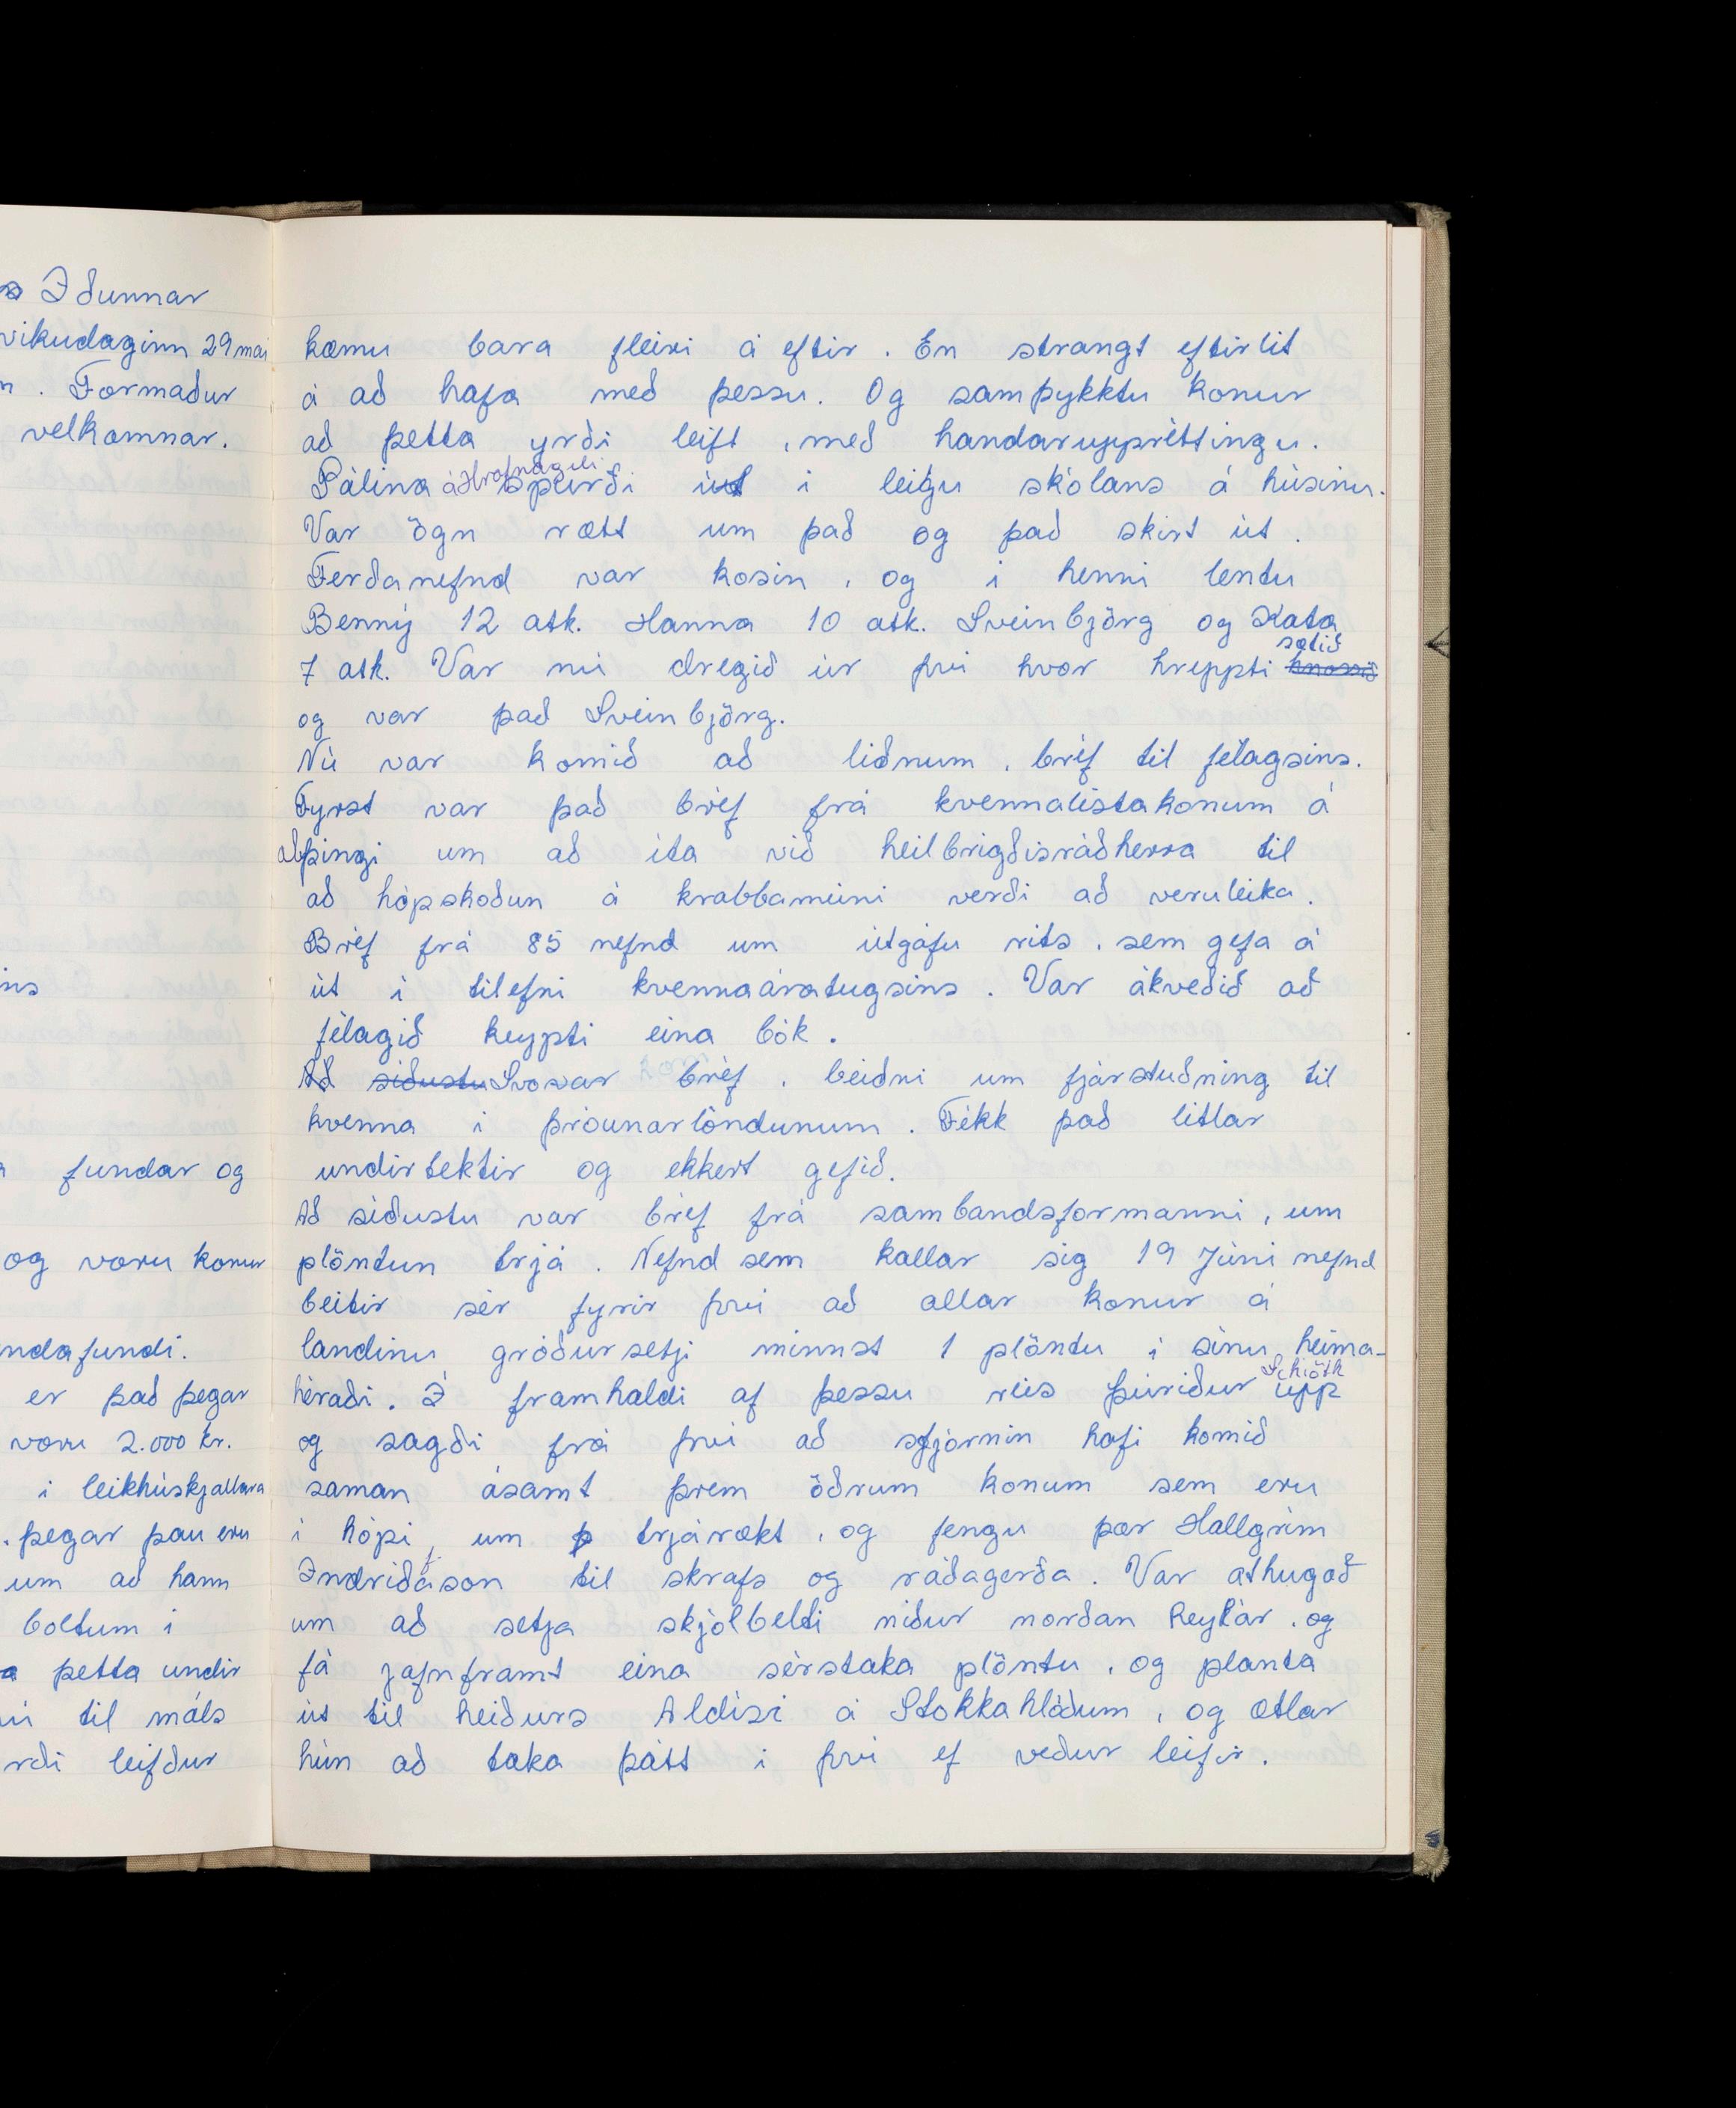 Iðunnar
vikudaginn 29 mai
n. Formaður
velkomnar.
ins
fundar og
og voru konur
ndafundi.
er það þegar
voru 2.000 kr.
i leikhúskjallara
. þegar þau eru
um að hann
boltum i
þetta undir
til máls
rði leifður
kæmu bara fleiri á eftir. En strangt eftirlit
á að hafa með þessu. Og samþykktu konur
að þetta yrði leift, með handaruppréttingu.
Pálína á Hrafnagili spurði út í leigu skólans á húsinu.
Var ögn rætt um það og það skirt út.
Ferðanefnd var kosin, og i henni lentu
Benný 12 atk. Hanna 10 atk. Sveinbjörg og Kata
7 atk. Var nú dregið úr því hvor hreppti hnossið sætið
og var það Sveinbjörg.
Nú var komið að liðnum, bréf til félagsins.
Fyrst var það bréf frá kvennalistakonum á
alþingi um að íta við heilbrigðisráðherra til
að hópskoðun á krabbameini verði að veruleika.
Bréf frá 85 nefnd um útgáfu rits, sem gefa á
út í tilefni kvennaáratugsins. Var ákveðið að
félagið keypti eina bók.
Að síðustu Svo var bréf, beiðni um fjárstuðning til
kvenna í þróunarlöndunum. Fékk það litlar
undirtektir og ekkert gefið.
Að síðustu var bréf frá sambandsformanni, um
plöntun trjá. Nefnd sem kallar sig 19 Júní nefnd
beitir sér fyrir því að allar konur á
landinu gróðursetji minnst 1 plöntu í sínu heima-
héraði. Í framhaldi af þessu reis Þúriður Schiöth upp
og sagði frá því að stjórnin hafi komið
saman ásamt þrem öðrum konum sem eru
í hópi, um þ trjárækt, og fengu þær Hallgrím
Indriðason til skrafs og ráðagerða. Var athugað
um að setja skjólbelti niður norðan Reykár, og
fá jafnframt eina sérstaka plöntu, og planta
út til heiðurs Aldísi á Stokkahlöðum, og ætlar
hún að taka þátt í því ef veður leifir.